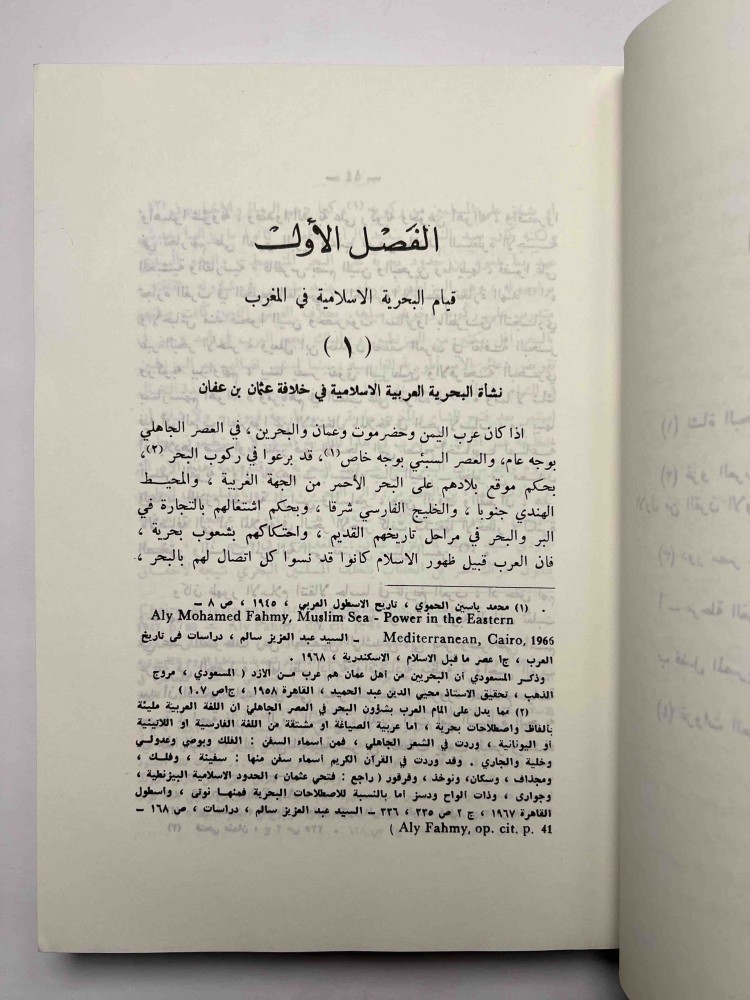 الفصل الأول
قيام البحرية الاسلامية في المغرب
( ١ )
نشأة البحرية العربية الاسلامية في خلافة عثمان بن عفان
اذا كان عرب اليمن وحضرموت وعمان والبحرين ، في العصر الجاهلي
بوجه عام، والعصر السبئي بوجه خاص(١)، قد برعوا في ركوب البحر (٢)،
بحكم موقع بلادهم على البحر الأحمر من الجهة الغربية ، والمحيط
الهندي جنوبا ، والخليج الفارسي شرقا ، وبحكم اشتغالهم بالتجارة في
البر والبحر في مراحل تاريخهم القديم ، واحتكاكهم بشعوب بحرية ،
فان العرب قبيل ظهور الاسلام كانوا قد نسوا كل اتصال لهم بالبحر ،
(١) محمد ياسين الحموي ، تاريخ الاسطول العربي ، ١٩٤٥ ، ص ٨ – .
Aly Mohamed Fahmy, Muslim Sea - Power in the Eastern
Mediterranean, Cairo, 1966 – السيد عبد العزيز سالم ، دراسات في تاريخ
العرب ، ج١ عصر ما قبل الاسلام ، الاسكندرية ، ١٩٦٨ .
وذكر المسعودي أن البحريين من أهل عمان هم عرب من الأزد ( المسعودي ، مروج
الذهب ، تحقيق الاستاذ محيي الدين عبد الحميد ، القاهرة ١٩٥٨ ، ج١ص ١٠٧ )
(٢) مما يدل على المام العرب بشؤون البحر في العصر الجاهلي ان اللغة العربية مليئة
بألفاظ واصطلاحات بحرية ، اما عربية الصياغة او مشتقة من اللغة الفارسية او اللاتينية
أو اليونانية ، وردت في الشعر الجاهلي ، فمن أسماء السفن : الفلك وبوصي وعدولي
وخلية والجاري . وقد وردت في القرآن الكريم أسماء سفن منها : سفينة ، وفلك ،
وجوارى ، وذات ألواح ودسر أما بالنسبة للاصطلاحات البحرية فمنها نوتى ، واسطول
ومجذاف ، وسكان، ونوخذ ، وقرقور ( راجع : فتحي عثمان ، الحدود الاسلامية البيزنطية ،
القاهرة ١٩٦٧ ، ج ٢ ص ٣٣٥ ، ٣٣٦ – السيد عبد العزيز سالم ، دراسات ، ص ١٦٨ –
Aly Fahmy, op. cit. p. 41 )